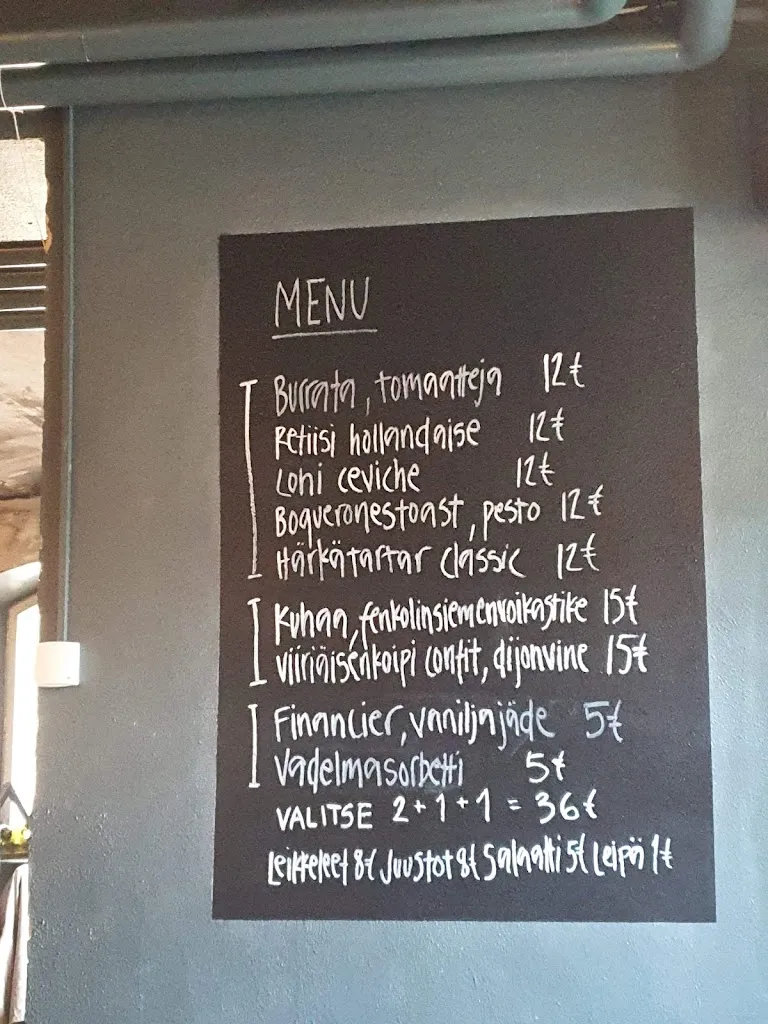 MENU
Burrata, tomaatteja 12€
Retiisi hollandaise 12€
Lohi ceviche 12€
Boqueronestoast, pesto 12€
Härkätartar classic 12€
Kuhaa, fenkolinsiemenvoikastike 15€
Viiriäisenkoipi confit, dijonvine 15€
Financier, vaniljajäde 5€
Vadelmasorbetti 5€
VALITSE 2+1+1 = 36€
Leikkeleet 8€ Juustot 8€ Salaatti 5€ Leipä 1€